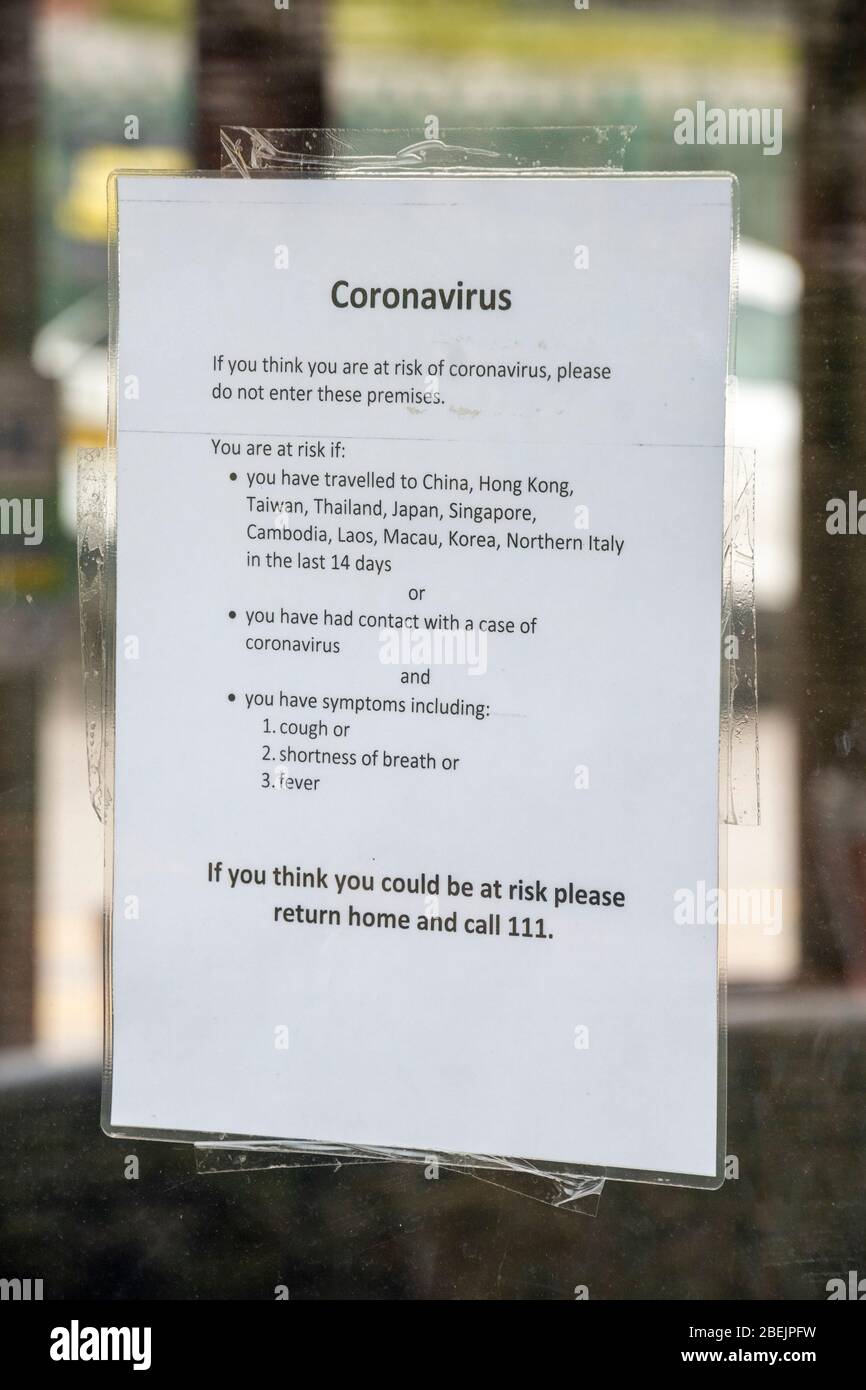 Coronavirus
If you think you are at risk of coronavirus, please
do not enter these premises.
You are at risk if:
• you have travelled to China, Hong Kong,
Taiwan, Thailand, Japan, Singapore,
Cambodia, Laos, Macau, Korea, Northern Italy
in the last 14 days
or
• you have had contact with a case of
coronavirus
and
• you have symptoms including:
1. cough or
2. shortness of breath or
3. fever
If you think you could be at risk please
return home and call 111.
alamy
alamy
alamy
alamy
alamy
alamy
alamy
alamy
Image ID: 2BEJPFW
www.alamy.com